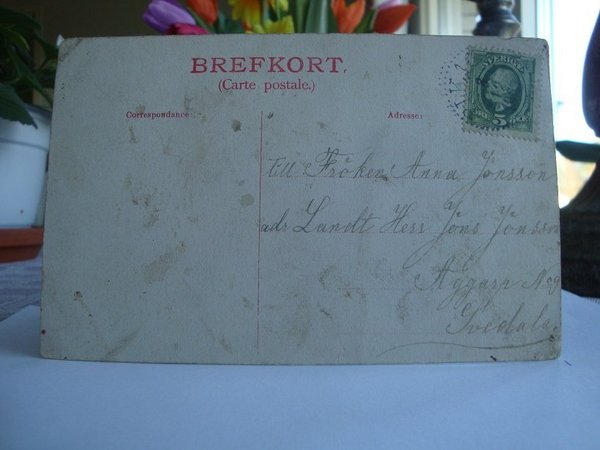 BREFKORT.
(Carte postale.)
SVERIGE
5
Correspondance:
Adresse:
till Fröken Anna Jönsson
adr Landt Herr Jöns Jönsson
Aggarp No 9
Svedala.